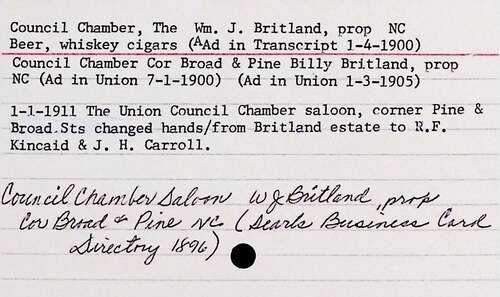 Council Chamber, The  Wm. J. Britland, prop  NC
Beer, whiskey cigars (AAd in Transcript 1-4-1900)
Council Chamber Cor Broad & Pine Billy Britland, prop
NC (Ad in Union 7-1-1900)  (Ad in Union 1-3-1905)
1-1-1911 The Union Council Chamber saloon, corner Pine &
Broad.Sts changed hands/from Britland estate to R.F.
Kincaid & J. H. Carroll.
Council Chamber Saloon  W J Britland, prop
Cor Broad & Pine NC (Searls Business Card
Directory 1896)